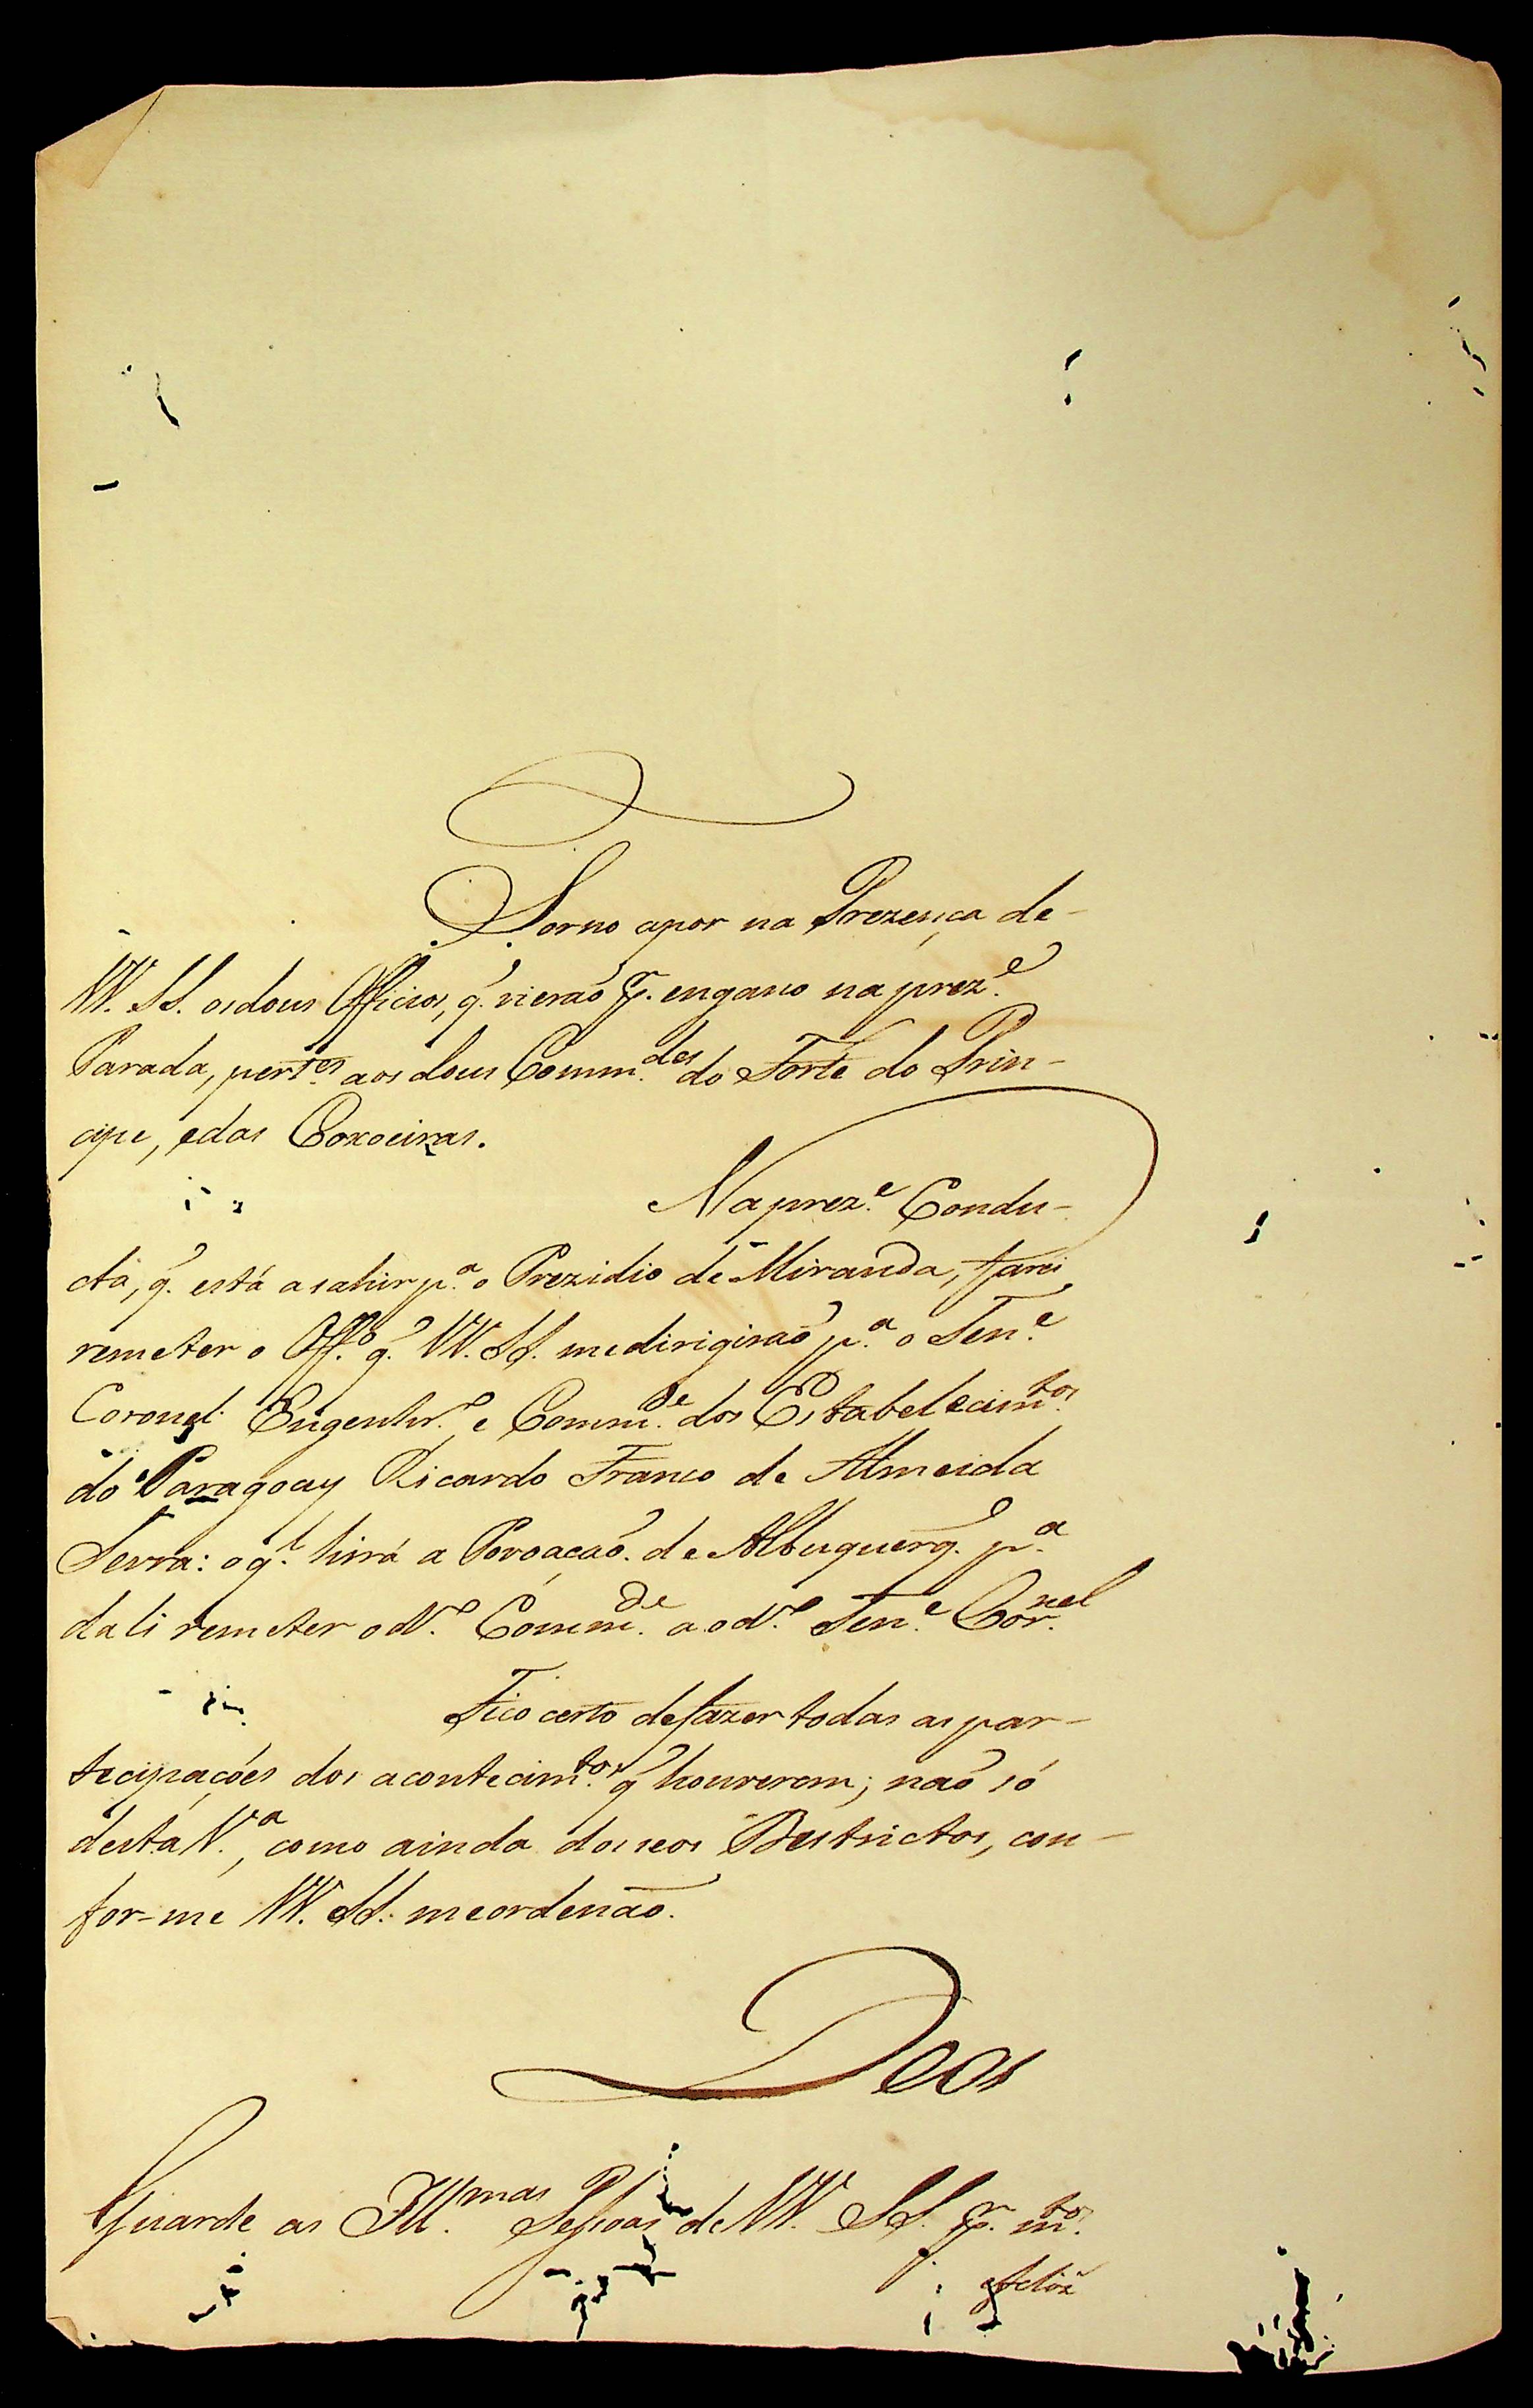 Torno apor na Prezença de-
VV. SS. os dous Officios, q̃. vierão p̃. engano na prez.e
Parada, pert.es aos dous Comm.des do Forte do Prin-
cipe, e das Caxoeiras.
Na prez.e Condu-
cta, q̃. está a sahir p.a o Prezidio de Miranda, farei
remeter o Off.o q̃. VV. SS. me dirigirão p.a o Ten.e
Coronel Engenhr.o e Comm.de dos Estabelecim.tos
do Paragoay Ricardo Franco de Almeida
Serra: o q.l hirá a Povoação de Albuquerq̃. p.a
dali remeter o d.o Comm.de ao d.o Ten.e Cor.nel
Fico certo de fazer todas as par-
tecipações dos acontecim.tos q̃ houverem; não só
desta V.a, como ainda dos seos Destrictos, con-
for-me VV. SS. me ordenão.
Deos
Guarde as Ill.mas Pessoas de VV. SS. p̃. m.tos